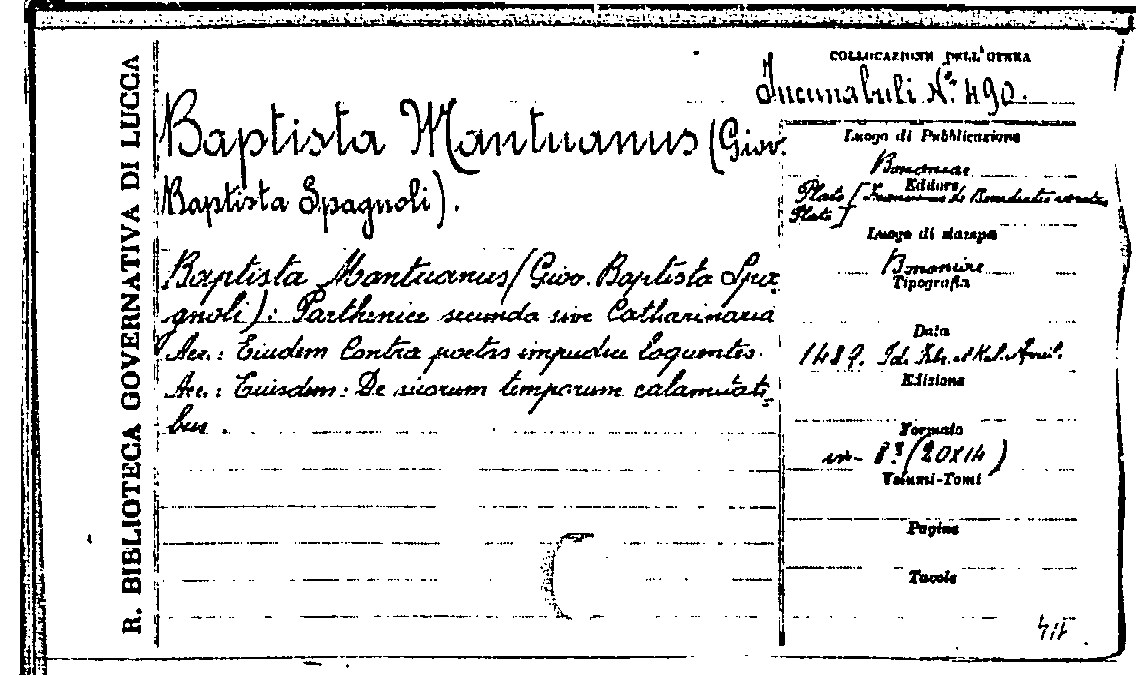 R. BIBLIOTECA GOVERNATIVA DI LUCCA
COLLOCAZIONE DELL'OPERA
Incunabuli N.° 490.
Baptista Mantuanus (Giov.
Baptista Spagnoli).
Baptista Mantuanus (Giov. Baptista Spa
gnoli): Parthenice secunda sive Catharinaria
Acc.: Eiusdem Contra poetas impudice loquentes.
Acc.: Eiusdem: De suorum temporum calamitati=
bus.
Luogo di Pubblicazione
Bononiae
Editore
Plato [ de Benedictis
Plato]
Luogo di stampa
Bononiae
Tipografia
Data
1489. Id. Febr. et Kal. April.
Edizione
Formato
in- 8° (20x14)
Volumi-Tomi
Pagine
Tavole